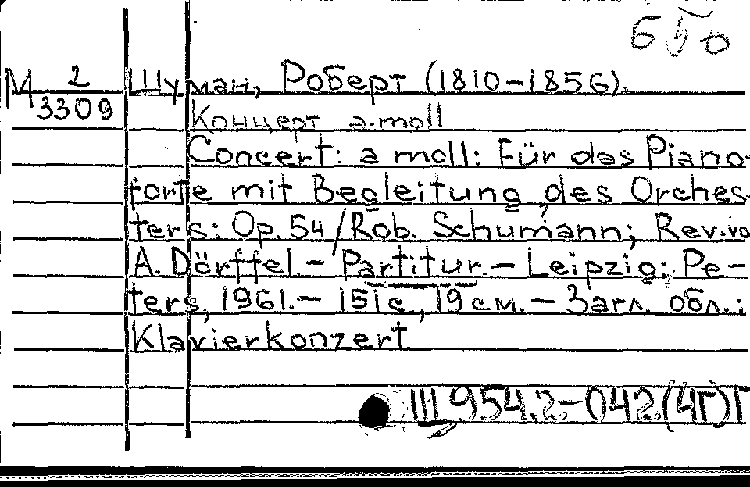 650
М 2 Шуман, Роберт (1810-1856).
3309
Концерт a-moll
Concert: a moll: Für das Piano-
forte mit Begleitung des Orches-
ters: Op. 54 / Rob. Schumann; Rev. vo
A. Dörffel. - Partitur. - Leipzig: Pe-
ters, 1961. - 151 с., 19 см. - Загл. обл.:
Klavierkonzert
Ш 954.2-042.(4Г)Г